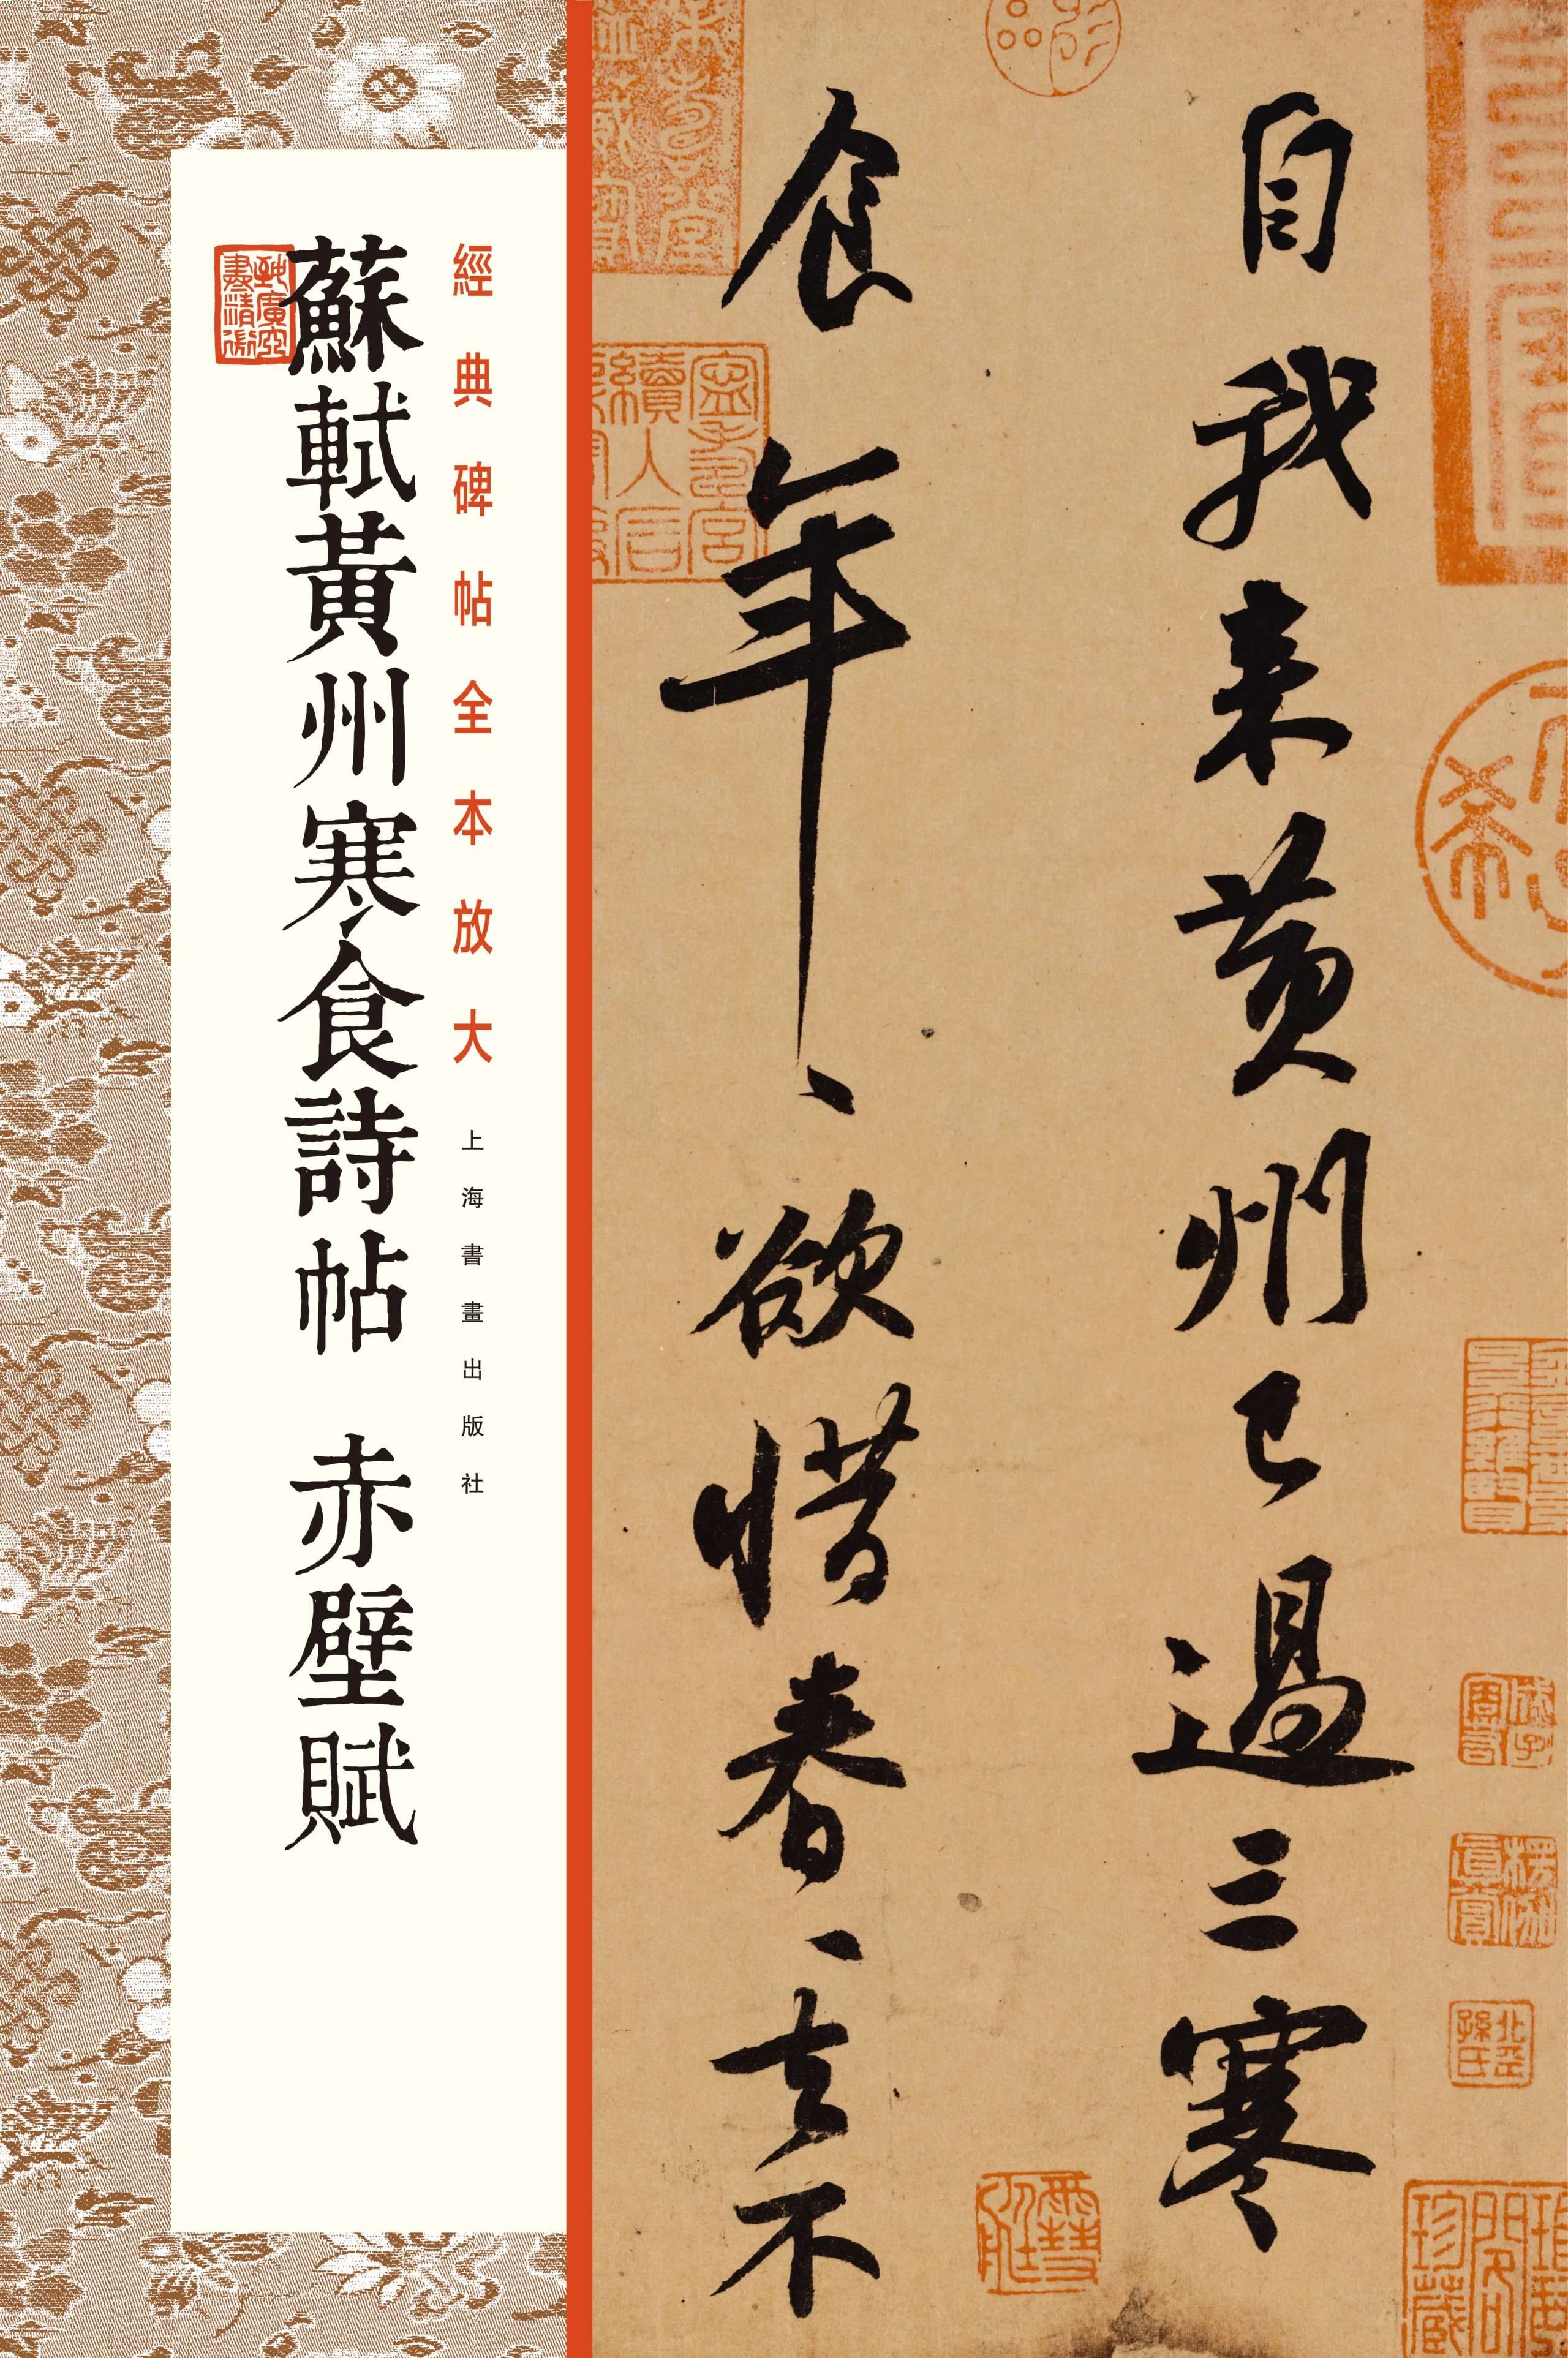 自我来黄州已過三寒
食年〻欲惜春〻去不
經典碑帖全本放大
上海書畫出版社
蘇軾黃州寒食詩帖 赤壁賦